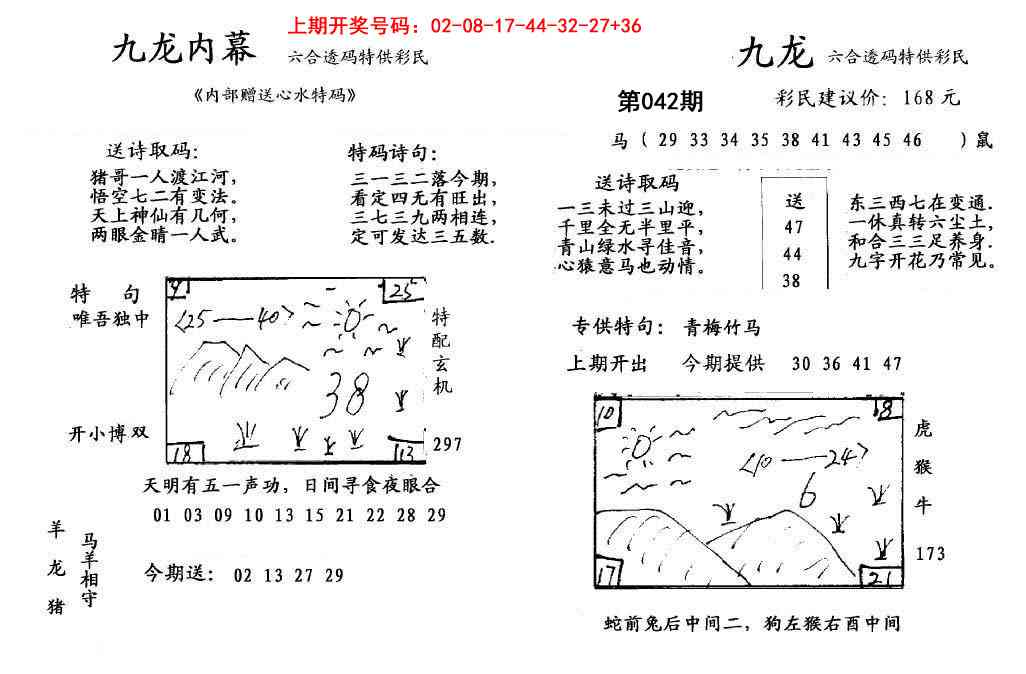 上期开奖号码：02-08-17-44-32-27+36
九龙内幕 六合透码特供彩民
《内部赠送心水特码》
送诗取码：
猪哥一人渡江河，
悟空七二有变法。
天上神仙有几何，
两眼金睛一人武。
特码诗句：
三一三二落今期，
看定四无有旺出，
三七三九两相连，
定可发达三五数．
特 句
唯吾独中
开小博双
25
<25——40>
38
18
13
特配玄机
297
天明有五一声功，日间寻食夜眼合
01 03 09 10 13 15 21 22 28 29
羊龙猪
马羊相守
今期送： 02 13 27 29
九龙 六合透码特供彩民
第042期 彩民建议价：168元
马（29 33 34 35 38 41 43 45 46 ）鼠
送诗取码
一三未过三山迎，
千里全无半里平，
青山绿水寻佳音，
心猿意马也动情。
送
47
44
38
东三西七在变通．
一休真转六尘土，
和合三三足养身．
九字开花乃常见。
专供特句： 青梅竹马
上期开出 今期提供 30 36 41 47
10
18
<10——24>
6
17
21
虎
猴
牛
173
蛇前兔后中间二，狗左猴右酉中间